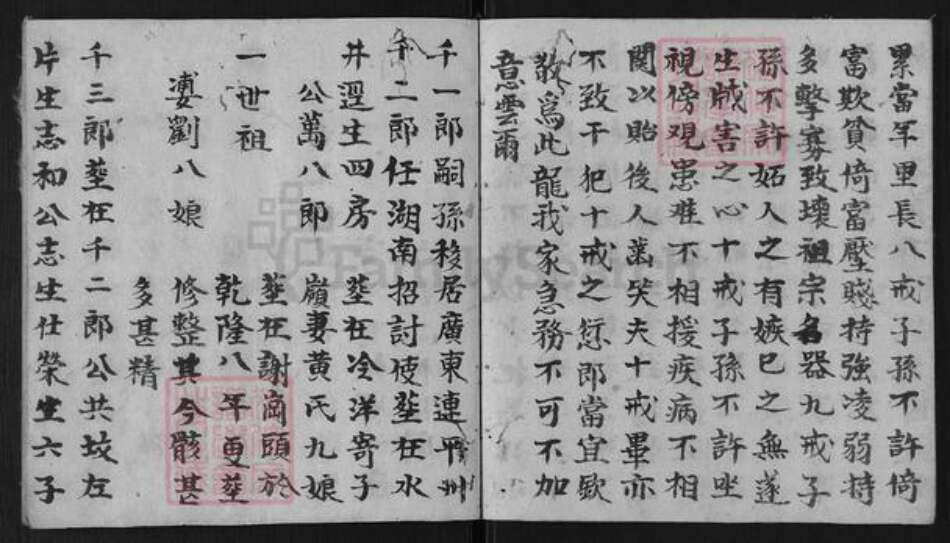 累當年里長八戒子孫不許倚
富欺貧倚富壓賤持強凌弱持
多擊寡致壞祖宗名器九戒子
孫不許妬人之有嫉己之無遂
生戕害之心十戒子孫不許坐
視傍观患难不相援疾病不相
関以貽後人萬哭夫十戒畢亦
不致干犯十戒之愆即當宜欽
敬為此龍我家急務不可不加
意雲爾
千一郎嗣孫移居廣東連平州
千二郎任湖南招討使塟在水
井逕生四房塟在冷洋寄子
公萬八郎嶺妻黃氏九娘
一世祖塟在謝崗頭於
乾隆八年更塟
妻劉八娘修整其今骸甚
多甚精
千三郎塟在千二郎公共坟左
片生志和公志生仕榮生六子